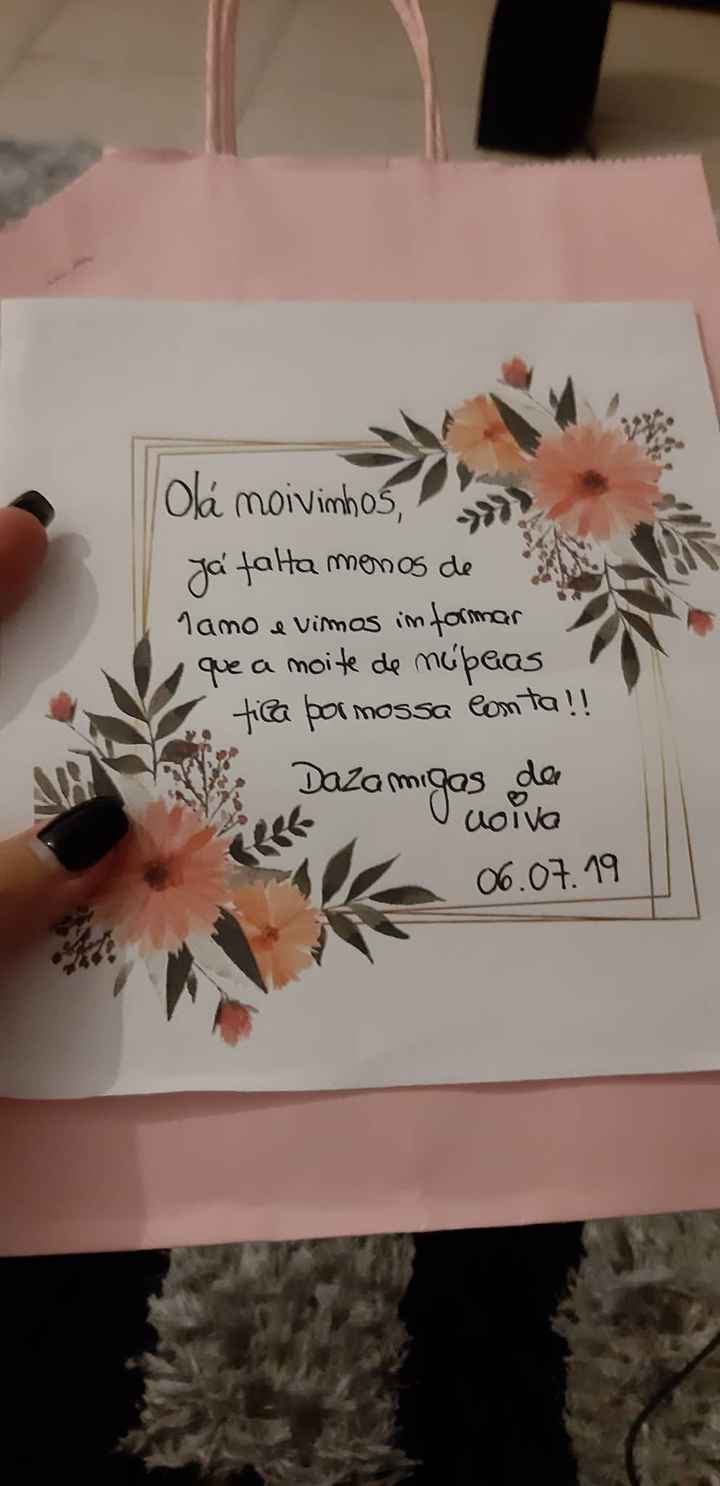 Olá noivinhos,
já falta menos de
1 ano e vimos informar
que a noite de núpcias
fica por nossa conta!!
Dazamigas da
noiva
06.07.19